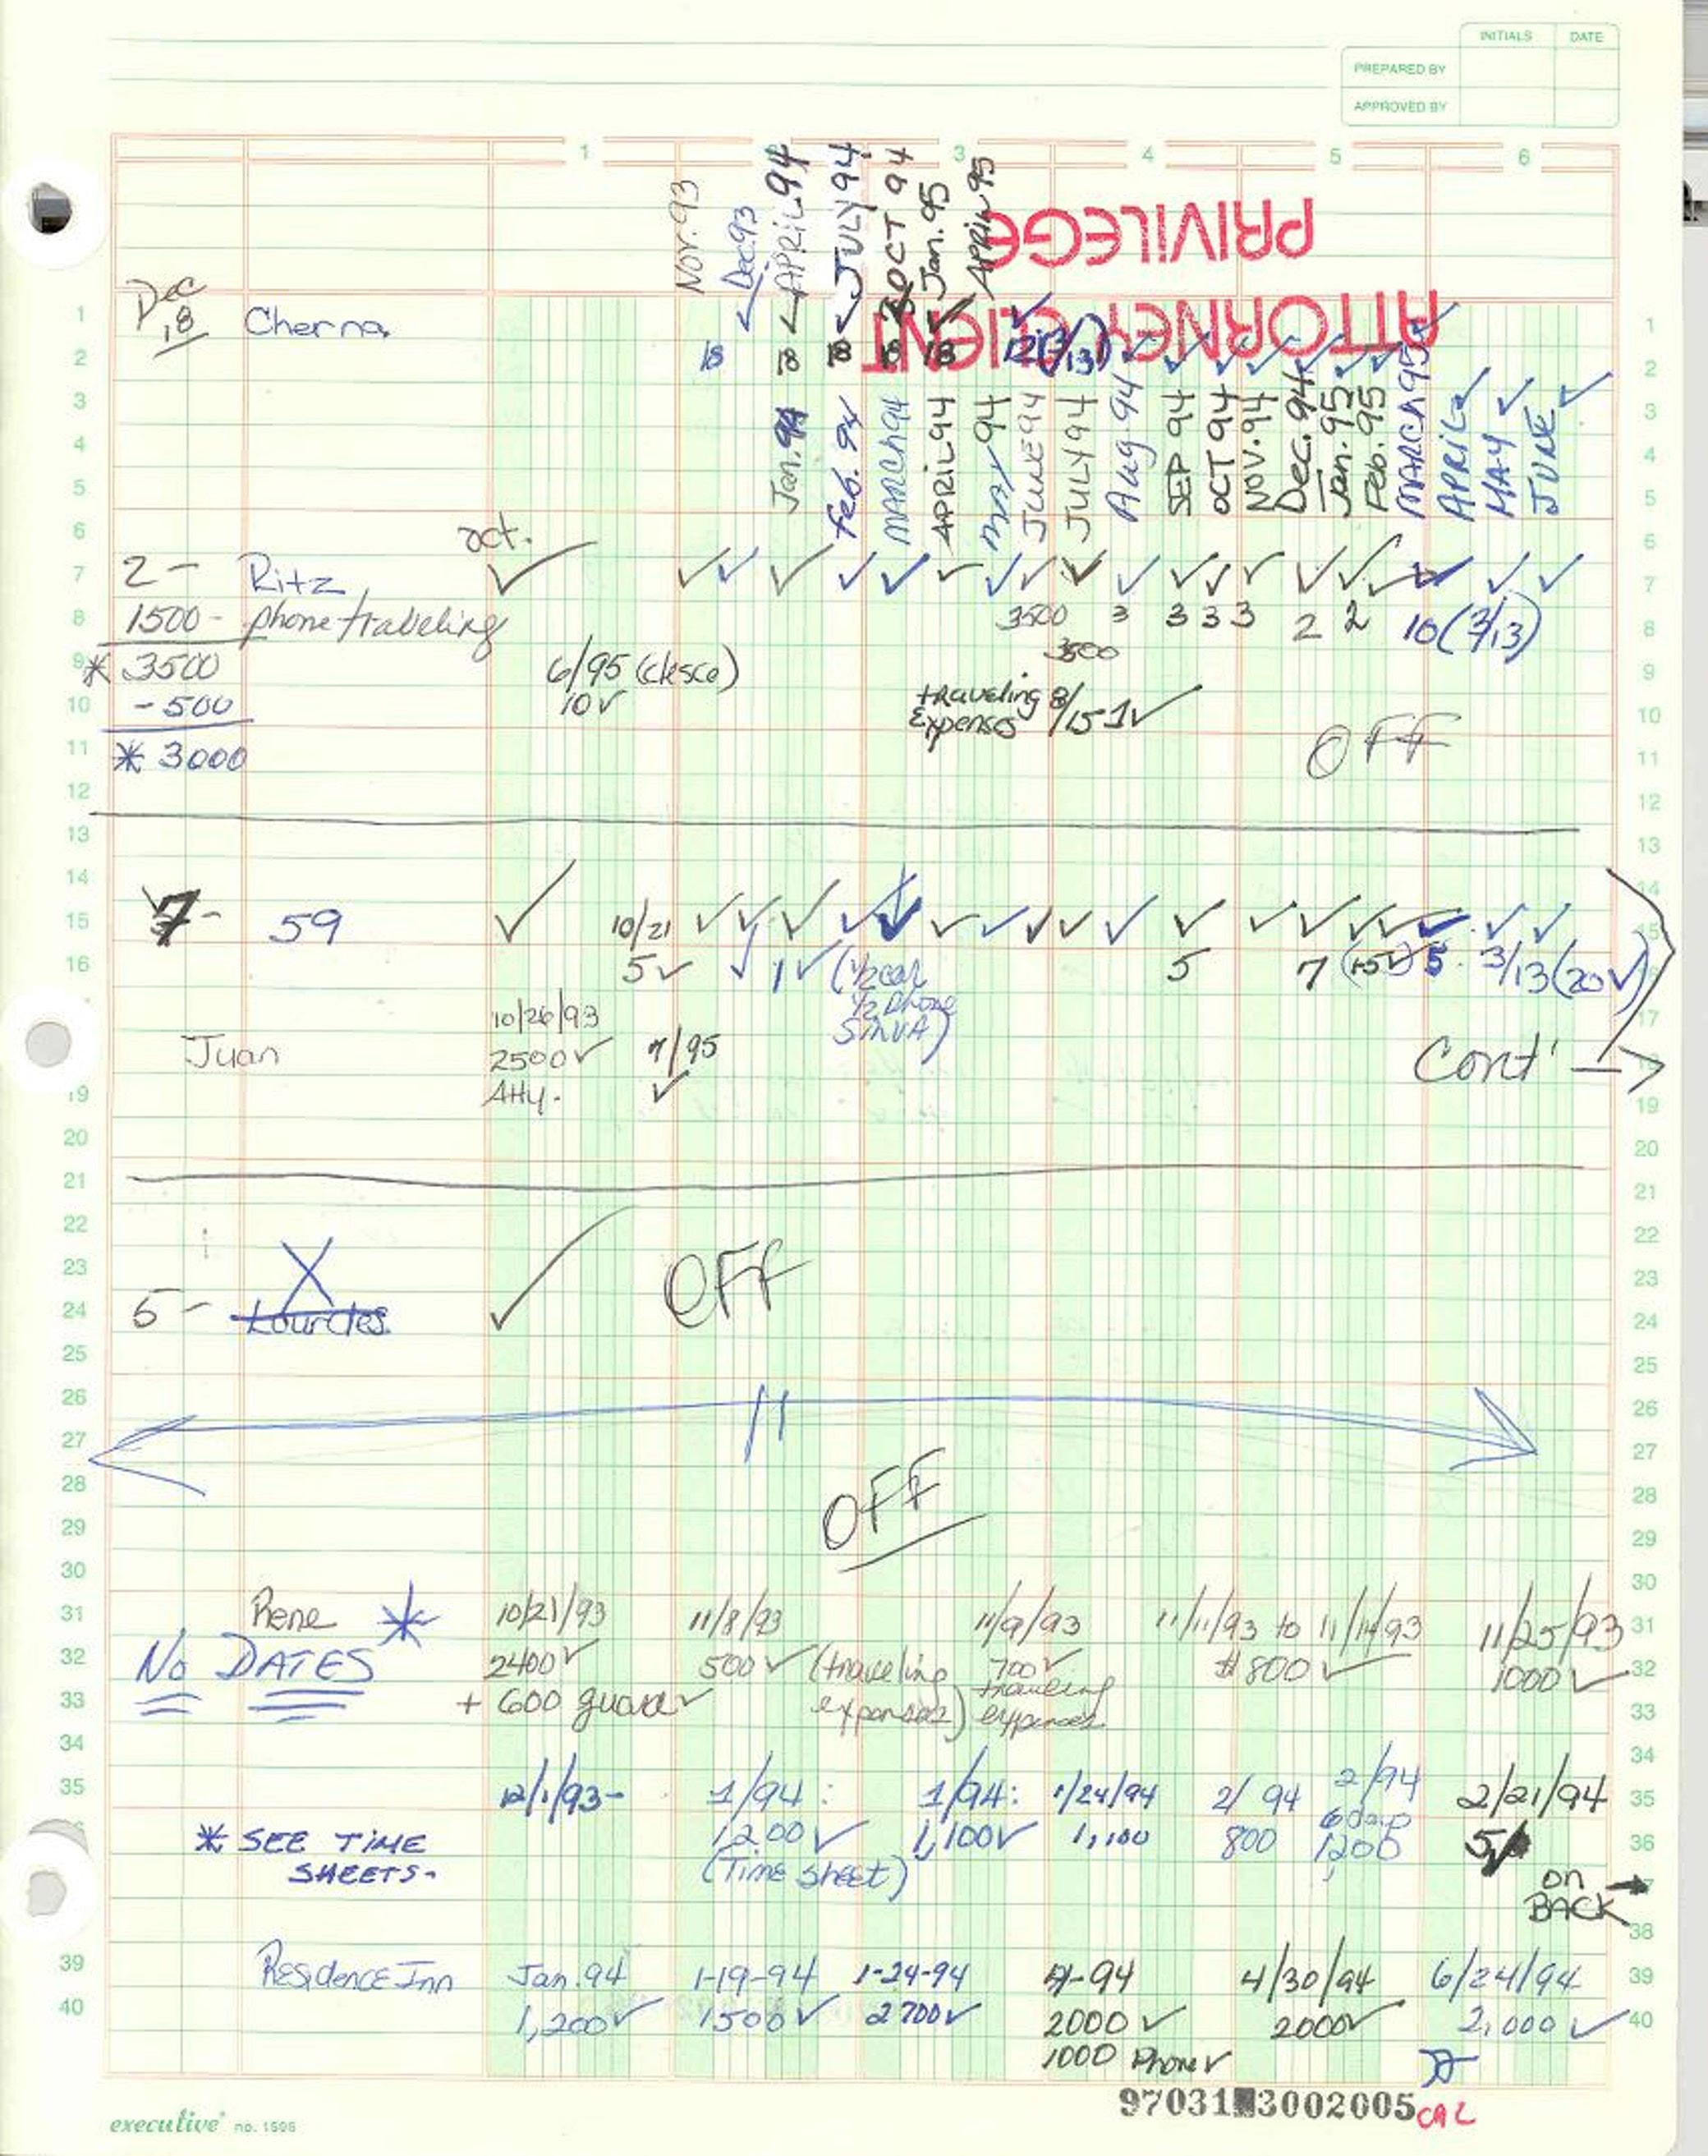 INITIALS DATE
PREPARED BY
APPROVED BY
1 3 4 5 6
Nov. 93 Dec. 93 APRIL 94 JULY 94 OCT 94 Jan. 95 APRIL 95
ATTORNEY CLIENT
PRIVILEGE
Dec 18 Cherna
18 18 18 18 18
Jan. 94 Feb. 94 MARCH 94 APRIL 94 MAY 94 JUNE 94 JULY 94 Aug 94 SEP 94 OCT 94 NOV. 94 Dec. 94 Jan. 95 Feb. 95 MARCH 95 APRIL MAY JUNE
oct.
2 - Ritz ✓ ✓ ✓ ✓ ✓ ✓ ✓ ✓ ✓ ✓ ✓ ✓ ✓ ✓ ✓ ✓ ✓ ✓ ✓
1500 - phone/traveling 3500 3 3 3 3 2 2 10 (3/13)
* 3500 6/95 (clesca) 3500
- 500 10 ✓ traveling expenses 8/15 1 ✓
* 3000 OFF
7 - 59 ✓ 10/21 ✓ ✓ ✓ ✓ ✓ ✓ ✓ ✓ ✓ ✓ ✓ ✓ ✓ ✓ ✓ ✓ ✓ ✓
5 ✓ ✓ 1 ✓ (1/2 car 5 7 5 3/13 (20 ✓)
1/2 phone
10/26/93
Juan 2500 ✓ 7/95 Cont' →
Atty. ✓
5 - Lourdes ✓ OFF
OFF
Rene * 10/21/93 11/8/93 11/9/93 11/11/93 to 11/14/93 11/25/93
NO DATES 2400 ✓ 500 ✓ (traveling expenses) 700 ✓ traveling expenses $800 ✓ 1000 ✓
+ 600 ✓
12/1/93 - 1/94: 1/94: 1/24/94 2/94 2/94 2/21/94
* SEE TIME SHEETS - 1,200 ✓ 1,100 ✓ 1,100 800 6 days 1,200
(Time Sheet)
on BACK →
Residence Inn Jan. 94 1-19-94 1-24-94 4/30/94 6/24/94
1,200 ✓ 1500 ✓ 2700 ✓ 2000 ✓ 2000 ✓ 2,000 ✓
1000 Phone ✓
97031 3002005 CAL
executive no. 1506